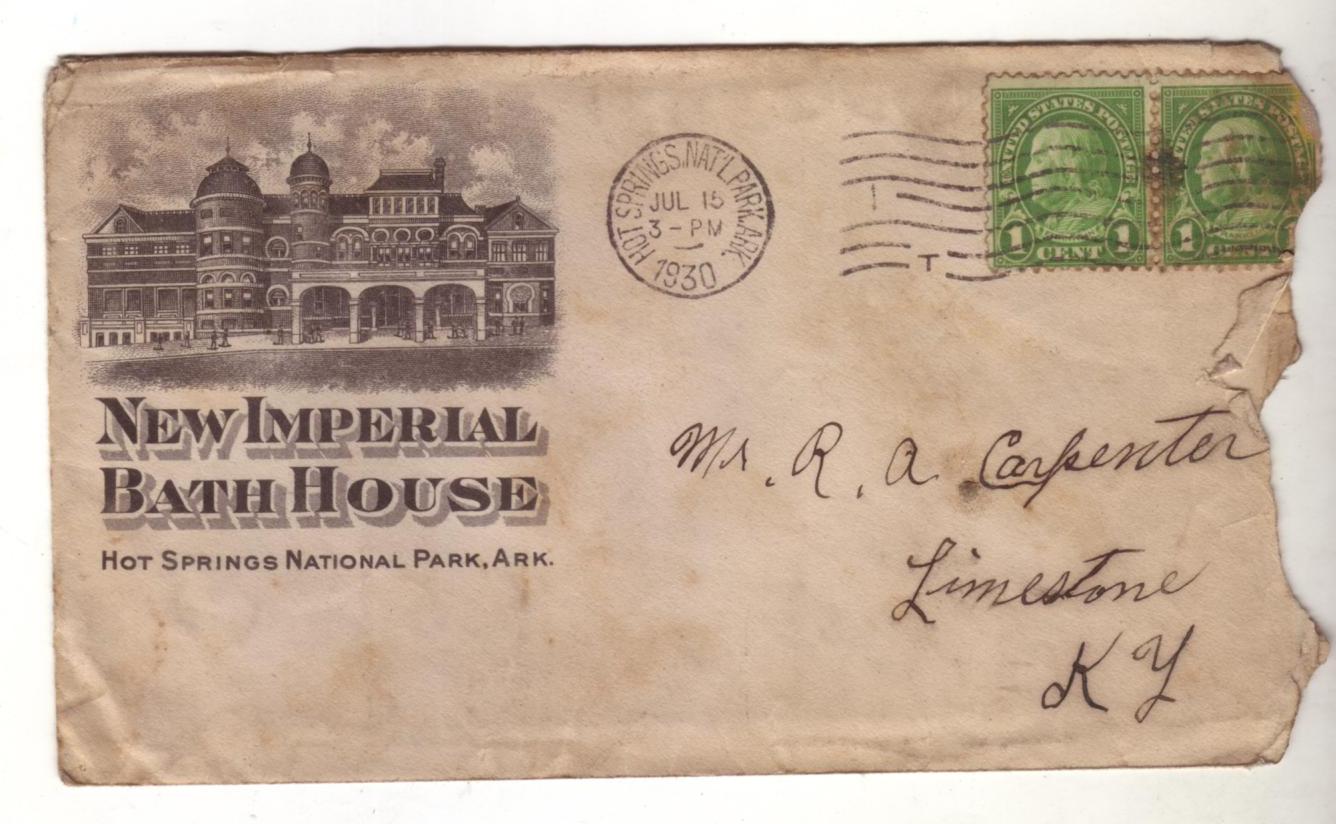 NEW IMPERIAL
BATH HOUSE
HOT SPRINGS NATIONAL PARK, ARK.
HOT SPRINGS, NAT'L PARK, ARK.
JUL 15
3 - PM
1930
1
T
UNITED STATES POSTAGE
1 CENT 1
UNITED STATES POSTAGE
1
Mr. R. A. Carpenter
Limestone
KY